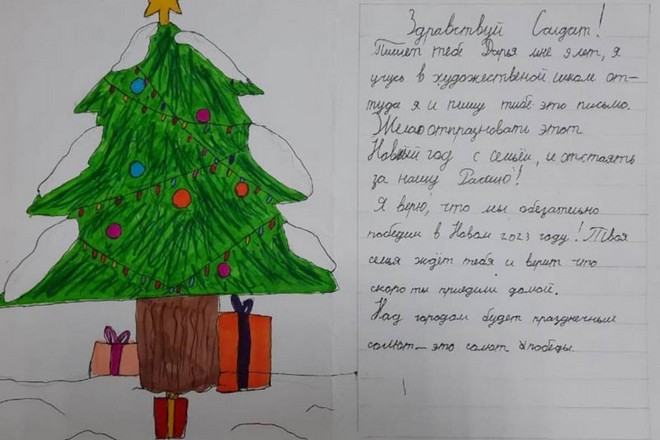 Здравствуй Солдат!
Пишет тебе Дарья мне 9 лет, я
учусь в художественой школе от-
туда я и пишу тибе это письмо.
Желаю отпразновать этот
Новый год с семьёй, и отстоять
за нашу Расию!
Я верю, что мы обезательно
победим в Новом 2023 году! Твоя
семья ждёт тебя и верит что
скоро ты приедиш домой.
Над городом будет праздничным
солют — это солют победы.